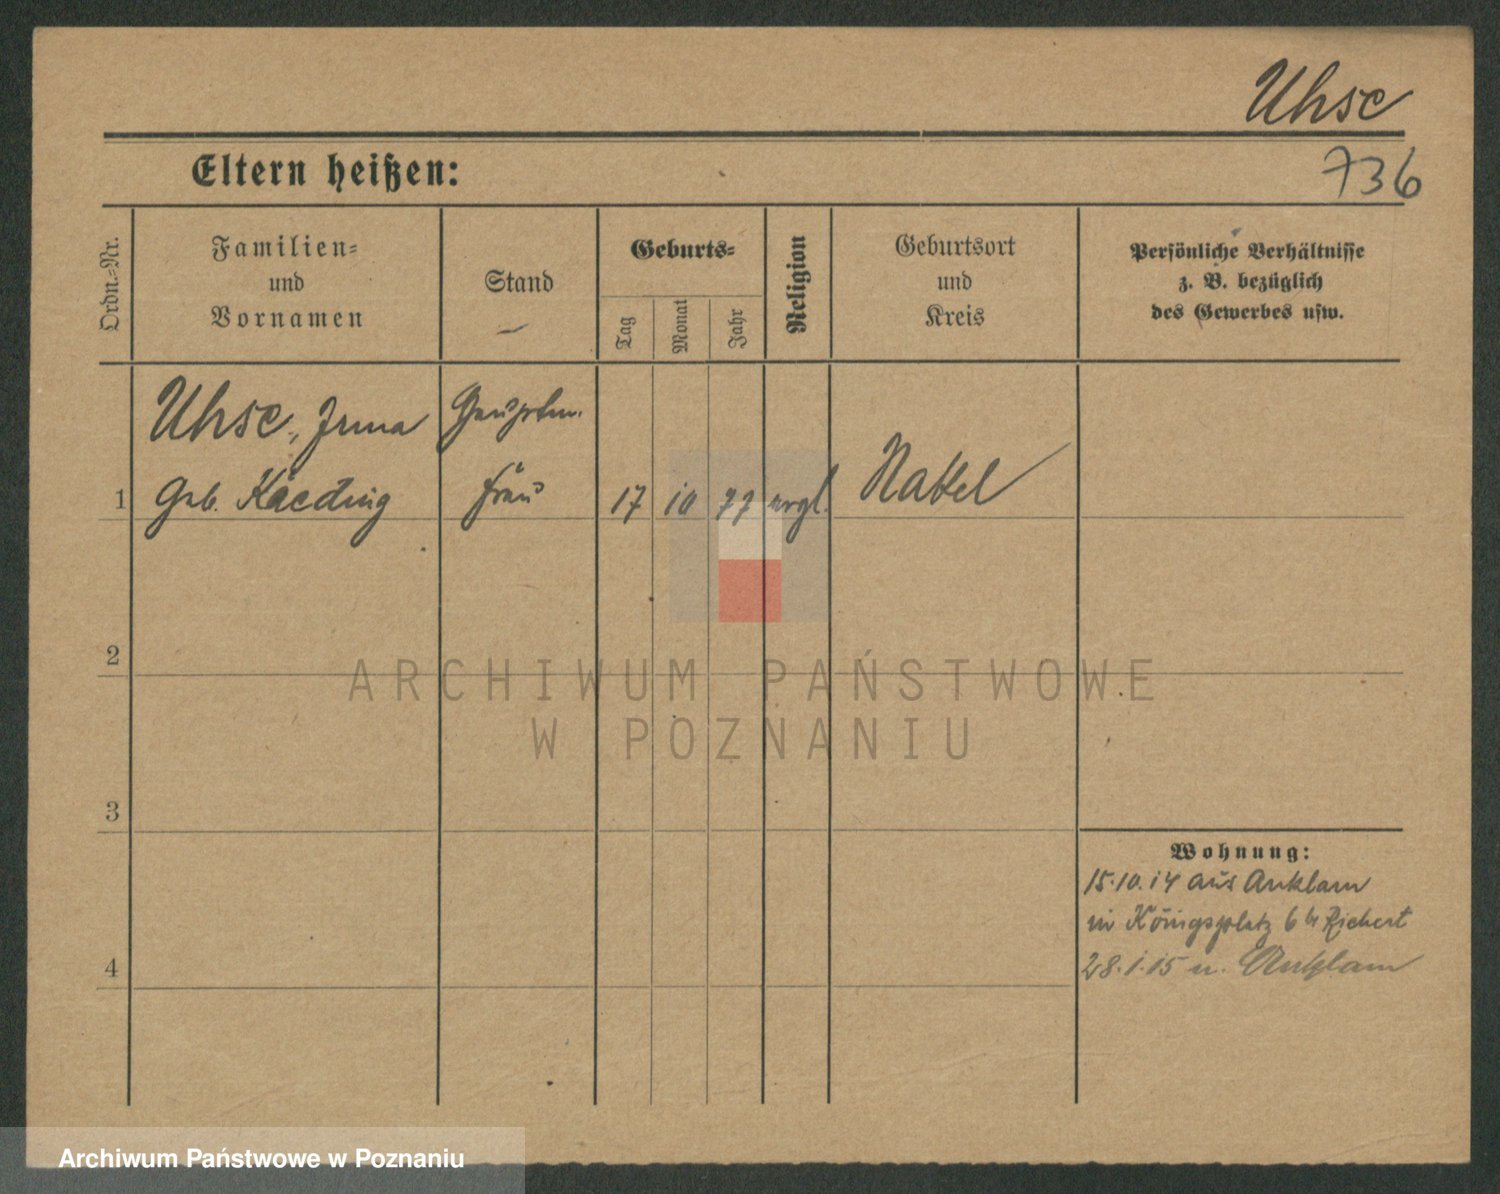 Uhse
Eltern heißen:
736
Ordn.=Nr.
Familien=
und
Vornamen
Stand
Geburts=
Tag
Monat
Jahr
Religion
Geburtsort
und
Kreis
Persönliche Verhältnisse
z. B. bezüglich
des Gewerbes usw.
Uhse, Irma Hauptm.
1 geb. Kaeding frau 17 10 77 evgl. Nakel
2
3
4
Wohnung:
15.10.14 aus Anklam
in Königsplatz 6 b/ Richert
28.1.15 n. Anklam
ARCHIWUM PAŃSTWOWE
W POZNANIU
Archiwum Państwowe w Poznaniu